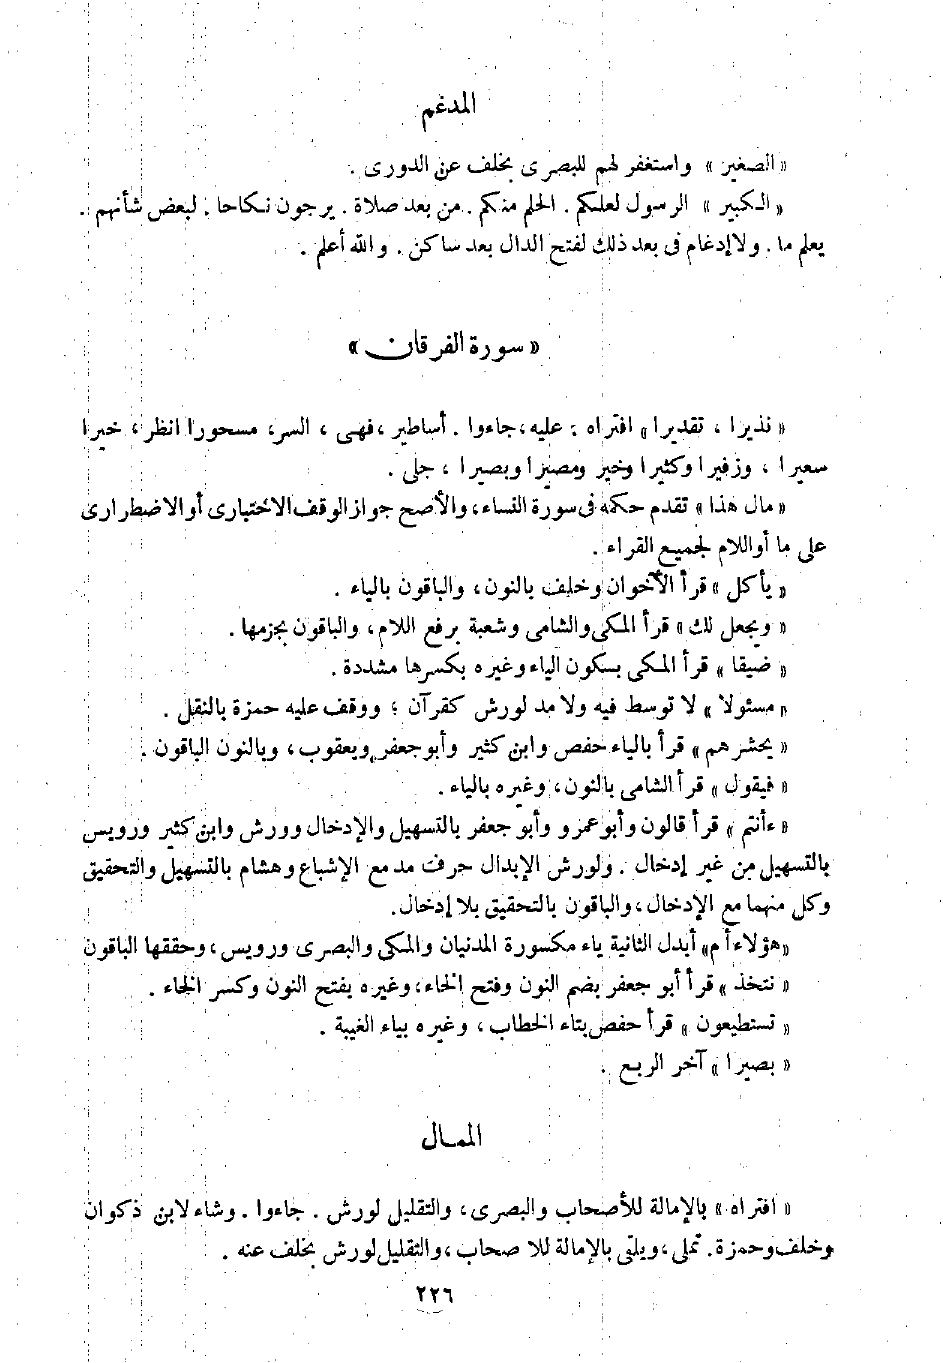 المدغم
« الصغير » واستغفر لهم للبصرى بخلف عن الدورى .
« الكبير » الرسول لعلكم . الحلم منكم . من بعد صلاة . يرجون نكاحا . لبعض شأنهم .
يعلم ما . ولا إدغام فى بعد ذلك لفتح الدال بعد ساكن . والله أعلم .
« سورة الفرقان »
« نذيرا ، تقديرا » افتراه ؛ عليه ، جاءوا . أساطير ، فهى ، السر ، مسحورا انظر ، خيرا
سعيرا ، وزفيرا وكثيرا وخير ومصيرا وبصيرا ، جلى .
« مال هذا » تقدم حكمه فى سورة النساء ، والأصح جواز الوقف الاختبارى أو الاضطرارى
على ما أو اللام لجميع القراء .
« يأكل » قرأ الأخوان وخلف بالنون ، والباقون بالياء .
« ويجعل لك » قرأ المكى والشامى وشعبة برفع اللام ، والباقون بجزمها .
« ضيقا » قرأ المكى بسكون الياء وغيره بكسرها مشددة .
« مسئولا » لا توسط فيه ولا مد لورش كقرآن ؛ ووقف عليه حمزة بالنقل .
« يحشرهم » قرأ بالياء حفص وابن كثير وأبو جعفر ويعقوب ، وبالنون الباقون .
« فيقول » قرأ الشامى بالنون ، وغيره بالياء .
« ءأنتم » قرأ قالون وأبو عمرو وأبو جعفر بالتسهيل والإدخال وورش وابن كثير ورويس
بالتسهيل من غير إدخال . ولورش الإبدال حرف مد مع الإشباع وهشام بالتسهيل والتحقيق
وكل منهما مع الإدخال ، والباقون بالتحقيق بلا إدخال .
« هؤلاء أم » أبدل الثانية ياء مكسورة المدنيان والمكى والبصرى ورويس ، وحققها الباقون
« نتخذ » قرأ أبو جعفر بضم النون وفتح الخاء ، وغيره بفتح النون وكسر الخاء .
« تستطيعون » قرأ حفص بتاء الخطاب ، وغيره بياء الغيبة .
« بصيرا » آخر الربع .
الممال
« افتراه » بالإمالة للأصحاب والبصرى ، والتقليل لورش . جاءوا . وشاء لابن ذكوان
وخلف وحمزة . تملى ، ويلقى بالإمالة للاصحاب ، والتقليل لورش بخلف عنه .
٢٢٦